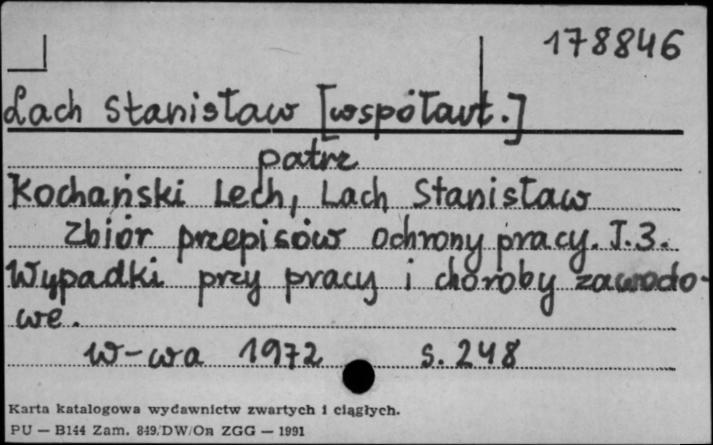 178846
Lach Stanisław [współaut.]
patrz
Kochański Lech, Lach Stanisław
Zbiór przepisów ochrony pracy. T.3.
Wypadki przy pracy i choroby zawodo-
we.
W-wa 1972 s. 248
Karta katalogowa wydawnictw zwartych i ciągłych.
PU — B144 Zam. 849/DW/On ZGG — 1991